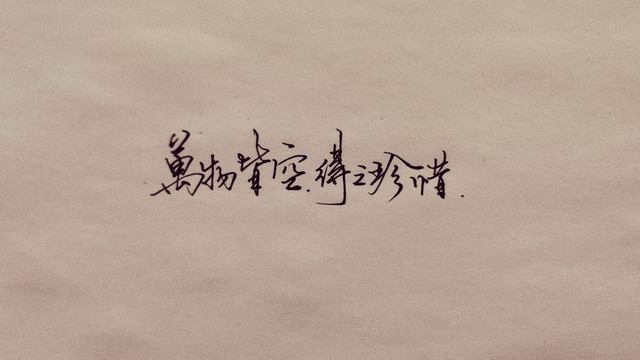 萬物皆空.得之珍惜.